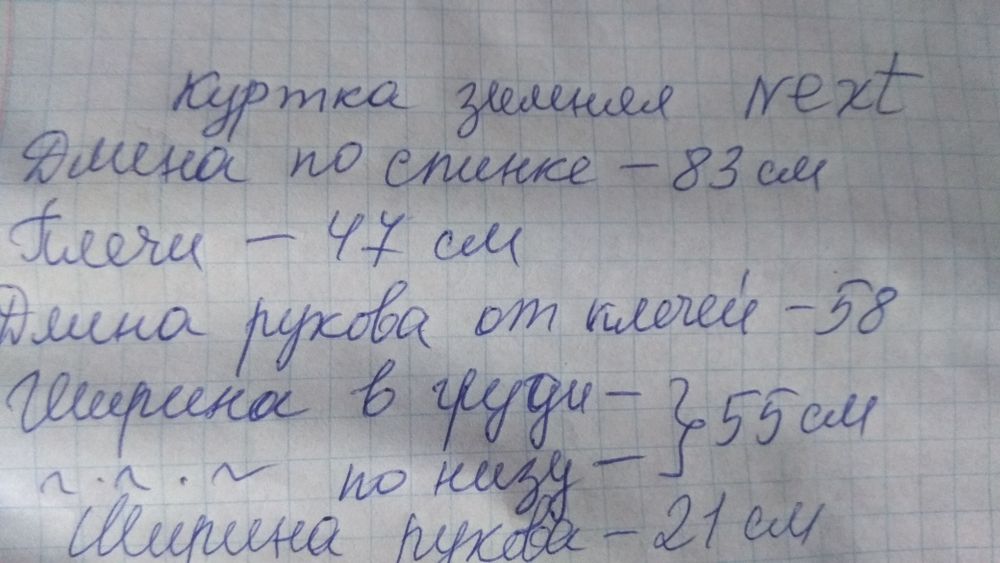 Куртка зимняя Next
Длина по спинке - 83 см
Плечи - 47 см
Длина рукова от плечей - 58
Ширина в груди - } 55 см
~ . ~ . ~ по низу -
Ширина рукова - 21 см